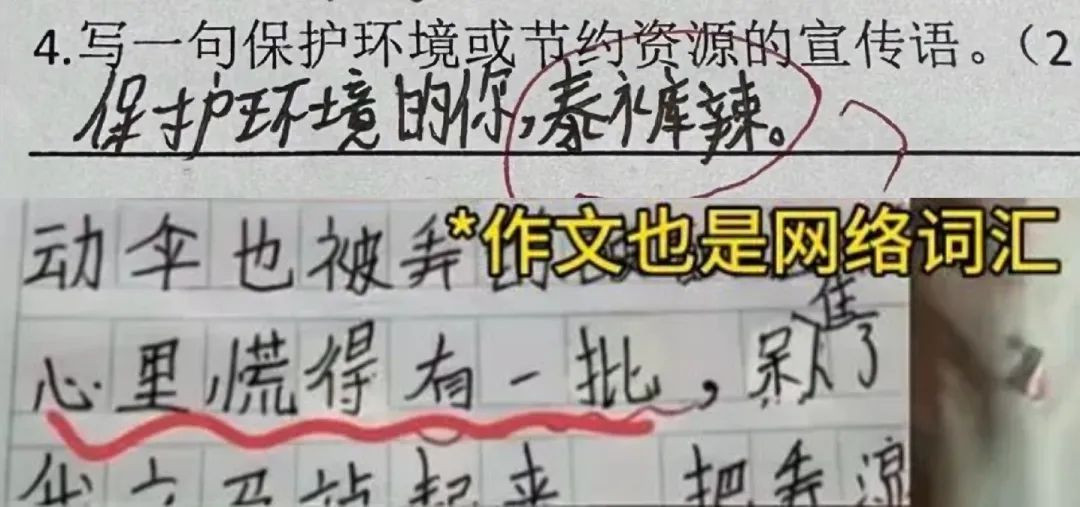 4.写一句保护环境或节约资源的宣传语。（2
保护环境的你,泰裤辣。
*作文也是网络词汇
动伞也被弄
心里慌得有一批，呆了
起来 把弄凉